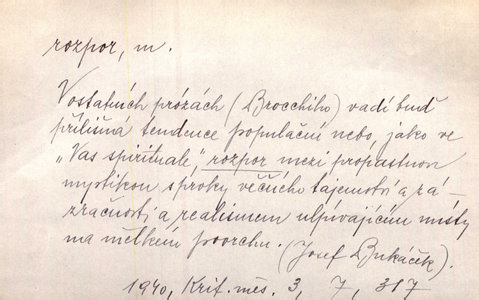 rozpor, m.
V ostatních prózách (Brocchiho) vadí buď
přílišná tendence populační nebo, jako ve
„Vas spirituale", rozpor mezi propastnou
mystikou s příky věčného tajemství a zá-
zračnosti a realismem ulpívajícím místy
na mělkém povrchu. (Josef Bukáček).
1940, Krit. měs. 3, 7, 317